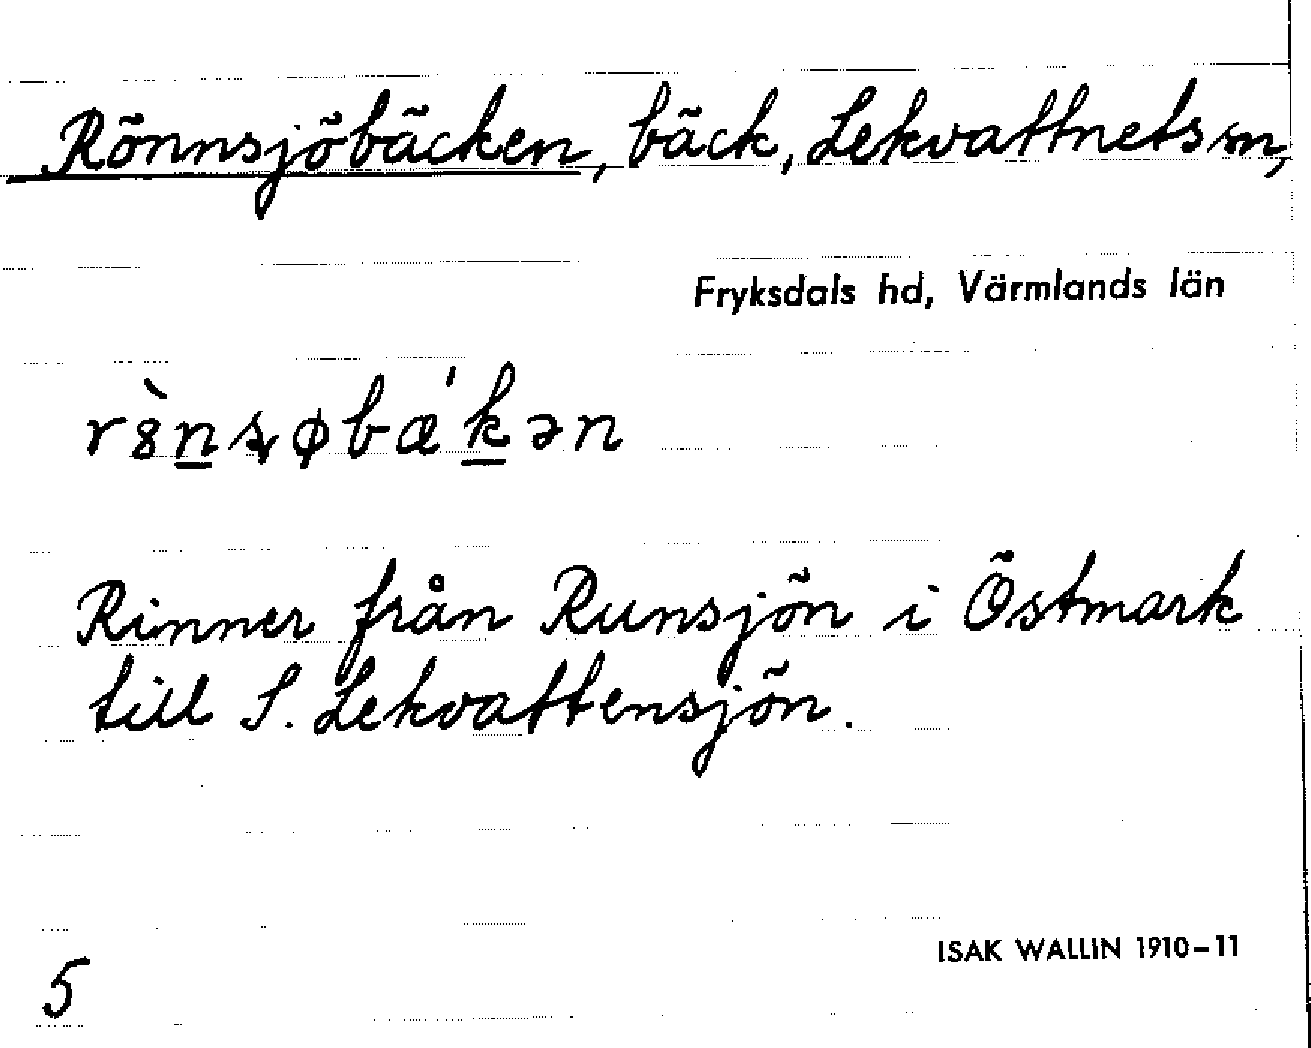 Rönnsjöbäcken, bäck, Lekvattnets sn,
Fryksdals hd, Värmlands län
Rinner från Runsjön i Östmark
till S. Lekvattensjön.
ISAK WALLIN 1910-11
5